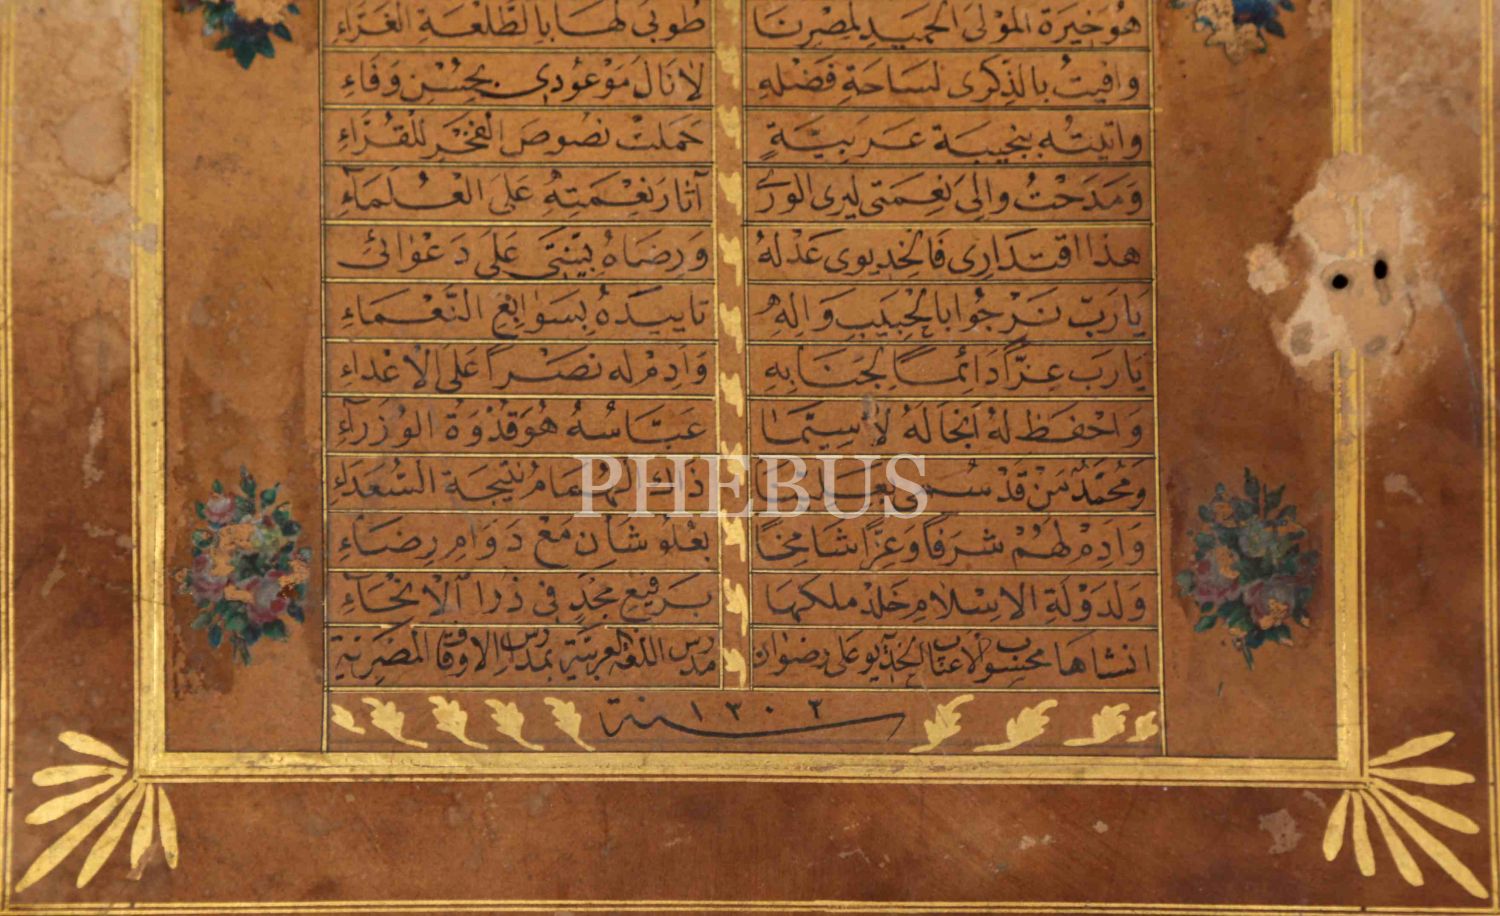 هُو خِيرَة المَوْلَى الحَمِيدِ لمِصْرِنَا طُوبَى لهَا بالطَّلْعَةِ الغَرَّاءِ
وافيتُ بالذِّكرَى لسَاحَةِ فَضْلِهِ لازَالَ مَوْعُودِي بحُسْنِ وَفَاءِ
واتيتُه بنجيبَة عَرَبيَّةٍ حَمَلتْ نصُوصَ الفَخْرِ للقُرَّاءِ
وَمَدَحْتُ والِى نِعْمَتى ليرى الوَرَى آثارَ نِعْمَتِهِ عَلَى العُلَمَاءِ
هذا اقتدَارِى فَالخِديوى عَدْلهُ وَرِضَاهُ بيِّنَتِى عَلَى دَعْوَائى
يَارَبّ نَرْجُوا بالحَبِيبِ وَالِهِ تاييدَهُ بِسَوَابِغِ النَّعْمَاءِ
يَارَبّ عِزًّا دَائِمًا لجَنَابِهِ وَادِمْ له نَصْرًا عَلَى الاَعْدَاءِ
وَاحْفَظ لهُ انجَالَهُ لاسِيَّمَا عَبَّاسُهُ هُوَ قُدْوَةُ الوُزَرَآءِ
وَمُحَمَّدٌ مَنْ قَدْ سُمى ذاكَ الهُمَامُ نتيجَةُ السُّعَدَاءِ
وَادِمْ لهُمْ شَرَفًا وَعِزًّا شَامِخًا بعُلُوِّ شَأنٍ مَعْ دَوَامِ رِضَاءِ
وَلدَوْلَةِ الاِسْلَامِ خَلِّدْ ملكهَا بَرفيعِ مَجْدٍ فى ذُرَا الاَنحَاءِ
انشاها محسوب الاعتاب الخديويه على رضوان مدرس اللغة العربية بمدارس الاوقاف المصرية
سنة ١٣٠٢
PHEBUS